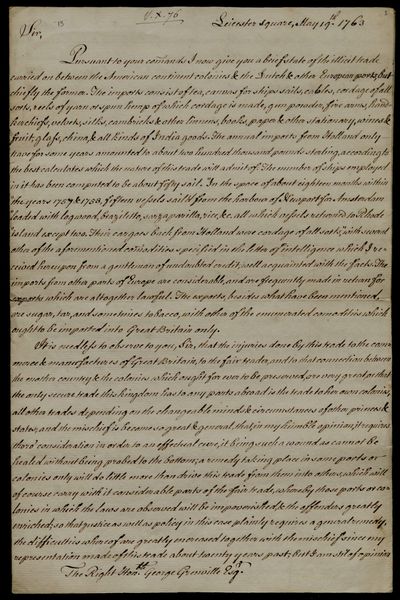 V. X. 76
13
Leicester Square, May 19th. 1763
Sir,
Pursuant to your comands I now give you a brief state of the illicit trade
carried on between the American continent colonies & the Dutch & other European ports, but
chiefly the former. The imports consist of tea, canvas for ships sails, cables, cordage of all
sorts, reels of yarn or spun hemp of which cordage is made, gun powder, fire arms, hand-
kerchiefs, velvets, silks, cambricks & other linnens, books, paper & other stationary, wines &
fruit, glass, china, & all kinds of India goods. The annual imports from Holland only
have for some years amounted to about two hundred thousand pounds sterling, according to
the best calculates which the nature of this trade will admit of. The number of ships employed
in it has been computed to be about fifty sail. In the space of about eighteen months within
the years 1757 & 1758, fifteen vessels sail'd from the harbour of Newport for Amsterdam
loaded with logwood, brazilletto, sarzaparilla, rice, &c. all which vessels returned to Rhode
island except two. Their cargoes back from Holland were cordage of all sorts, with several
other of the aforementioned comodities specified in the letter of intelligence which I re-
ceived hereupon from a gentleman of undoubted credit, well acquainted with the facts. The
imports from other parts of Europe are considerable, and are frequently made in return for
exports which are altogether lawful. The exports, besides what have been mentioned,
are sugar, tar, and sometimes tobacco, with other of the enumerated comodities which
ought to be imported into Great Britain only.
It is needless to observe to you, Sir, that the injuries done by this trade to the com-
merce & manufactures of Great Britain, to the fair trader, and to that connection between
the mother country & the colonies which ought for ever to be preserved, are very great; that
the only secure trade this kingdom has to any parts abroad is the trade to her own colonies,
all other trades depending on the changeable minds & circumstances of other princes &
states; and the mischief is become so great & general, that, in my humble opinion, it requires
thoro' consideration in order to an effectual cure, it being such a wound as cannot be
healed without being probed to the bottom; a remedy taking place in some ports or
colonies only will do little more than drive this trade from them into others, which will
of course carry with it considerable parts of the fair trade, whereby those ports or co-
lonies in which the laws are observed will be impoverished, & the offenders greatly
enriched; so that justice as well as policy in this case plainly requires a general remedy,
the difficulties whereof are greatly increased together with the mischief since my
representation made of this trade about twenty years past; but I am still of opinion
The Right Honble. George Grenville Esqr.